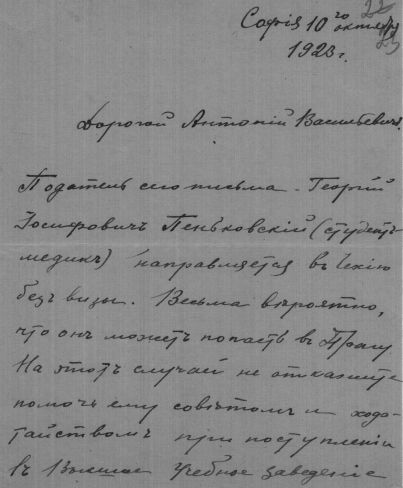 22
23
Софія 10го октября
1923 г.
Дорогой Антоній Васильевичъ.
Податель сего письма - Георгій
Іосифовичъ Пеньковскій (студентъ-
медикъ) направляется въ Чехію
безъ визы. Весьма вѣроятно,
что онъ можетъ попасть въ Прагу
На этотъ случай не откажите
помочь ему совѣтомъ и ходо-
тайствомъ при поступленіи
въ Высшее Учебное заведеніе